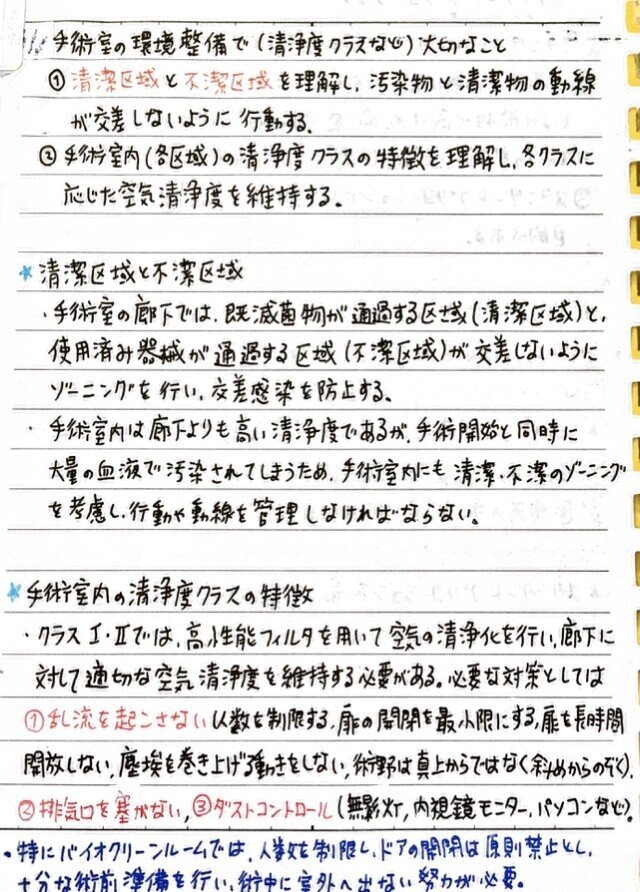 手術室の環境整備で(清浄度クラスなど)大切なこと
①清潔区域と不潔区域を理解し、汚染物と清潔物の動線
が交差しないように行動する。
②手術室内(各区域)の清浄度クラスの特徴を理解し、各クラスに
応じた空気清浄度を維持する。
★清潔区域と不潔区域
・手術室の廊下では、既滅菌物が通過する区域(清潔区域)と、
使用済み器械が通過する区域(不潔区域)が交差しないように
ゾーニングを行い、交差感染を防止する。
・手術室内は廊下よりも高い清浄度であるが、手術開始と同時に
大量の血液で汚染されてしまうため、手術室内にも清潔・不潔のゾーニング
を考慮し、行動や動線を管理しなければならない。
★手術室内の清浄度クラスの特徴
・クラスⅠ・Ⅱでは、高性能フィルタを用いて空気の清浄化を行い、廊下に
対して適切な空気清浄度を維持する必要がある。必要な対策としては
①乱流を起こさない(人数を制限する、扉の開閉を最小限にする、扉を長時間
開放しない、塵埃を巻き上げる動きをしない、術野は真上からではなく斜めからのぞく)、
②排気口を塞がない、③ダストコントロール(無影灯、内視鏡モニター、パソコンなど)。
・特にバイオクリーンルームでは、人数を制限し、ドアの開閉は原則禁止とし、
十分な術前準備を行い、術中に室外へ出ない努力が必要。